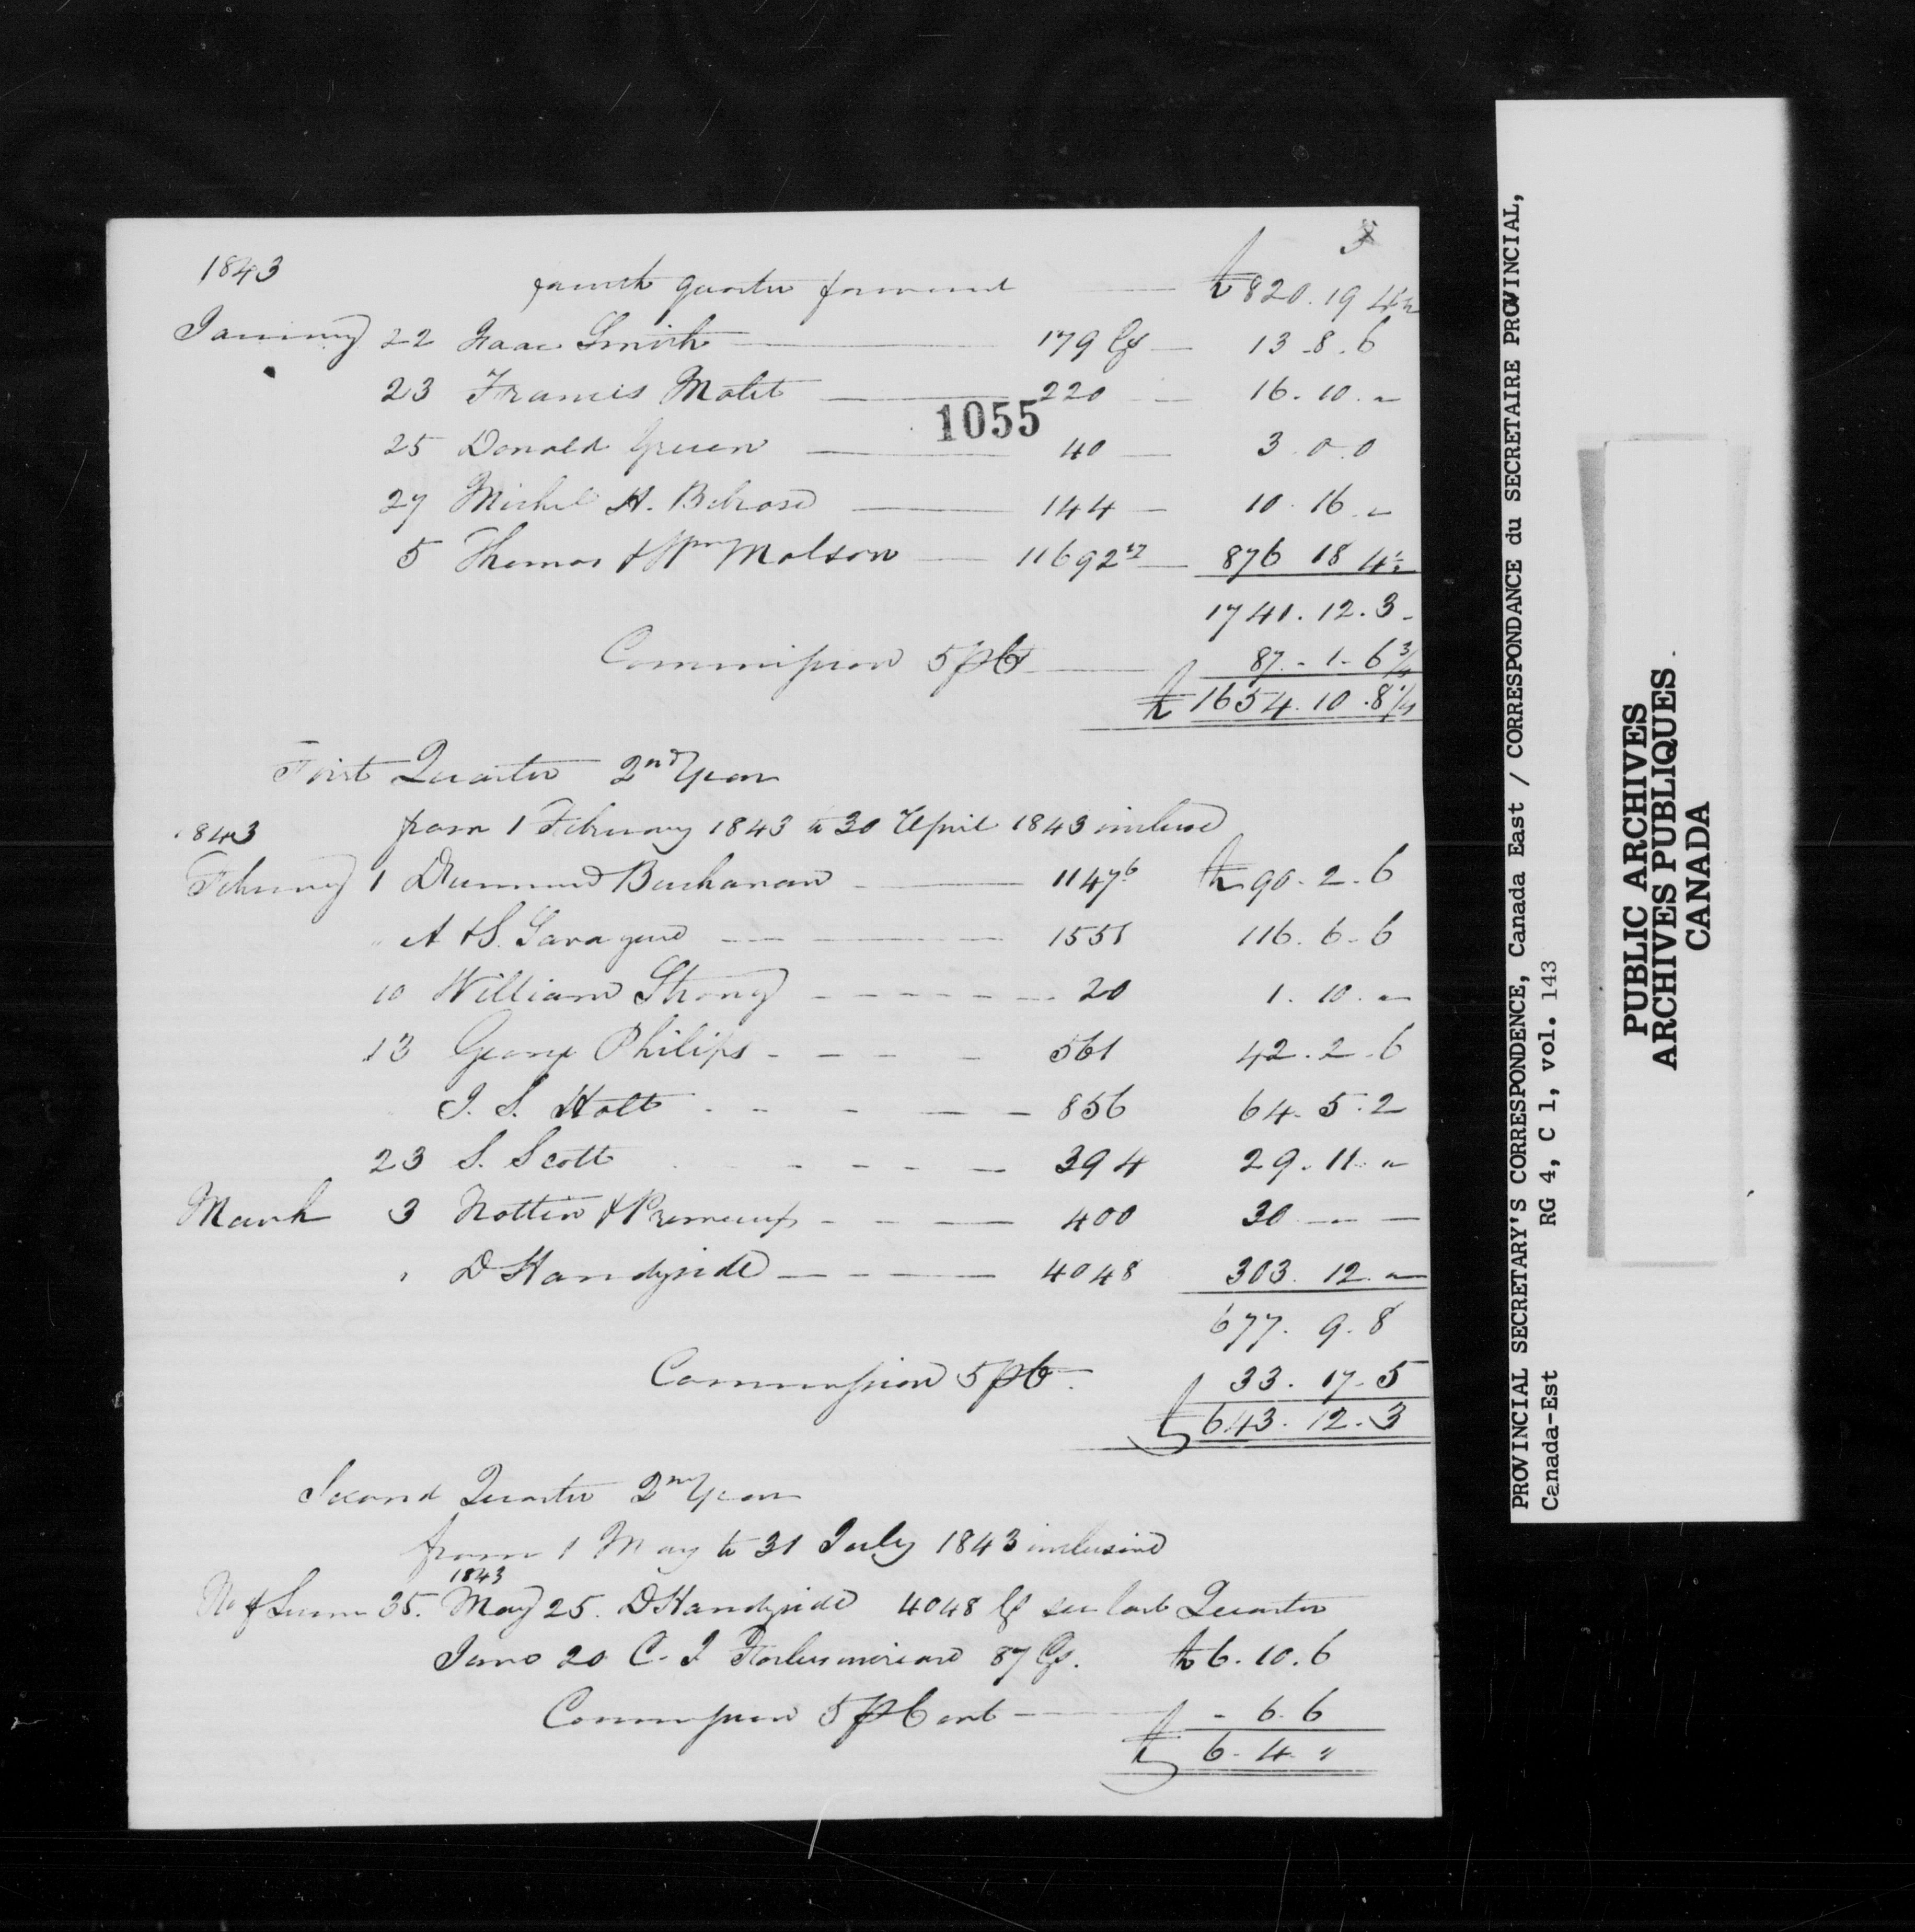 3
1843
fourth quarter forward £820.19 4½
January 22 Isaac Smith 179 Gs 13.8.6
23 Francis Molet 220 16.10.„
1055
25 Donald Green 40 3.0.0
27 Michel H. Belrose 144 10.16.„
5 Thomas & Wm Molson 11692 17 876 18 4½
1741.12.3
Commission 5 p Ct 87.1.6 3/4
£1654.10.8 1/4
First Quarter 2nd Year
1843 from 1 February 1843 to 30 April 1843 inclusive
February 1 Dunmund Buchanan 1147 6 £90.2.6
„ A & S. Savageud 1551 116.6.6
10 William Strong 20 1.10.„
13 George Philips 561 42.2.6
J. S. Holt 856 64.5.2
23 S. Scott 394 29.11.„
March 3 & 400 30 — —
„ D Handyside 4048 303.12.„
677.9.8
Commission 5 p Ct 33.17.5
£643.12.3
Second Quarter 2nd Year
from 1 May to 31 July 1843 inclusive
1843
No of 35. May 25. D Handyside 4048 Gs see last Quarter
June 20 C. J. 87 Gs. £6.10.6
Commission 5 p Cent - 6.6
£6.4.„
PROVINCIAL SECRETARY'S CORRESPONDENCE, Canada East / CORRESPONDANCE du SECRETAIRE PROVINCIAL,
Canada-Est RG 4, C 1, vol. 143
PUBLIC ARCHIVES
ARCHIVES PUBLIQUES
CANADA